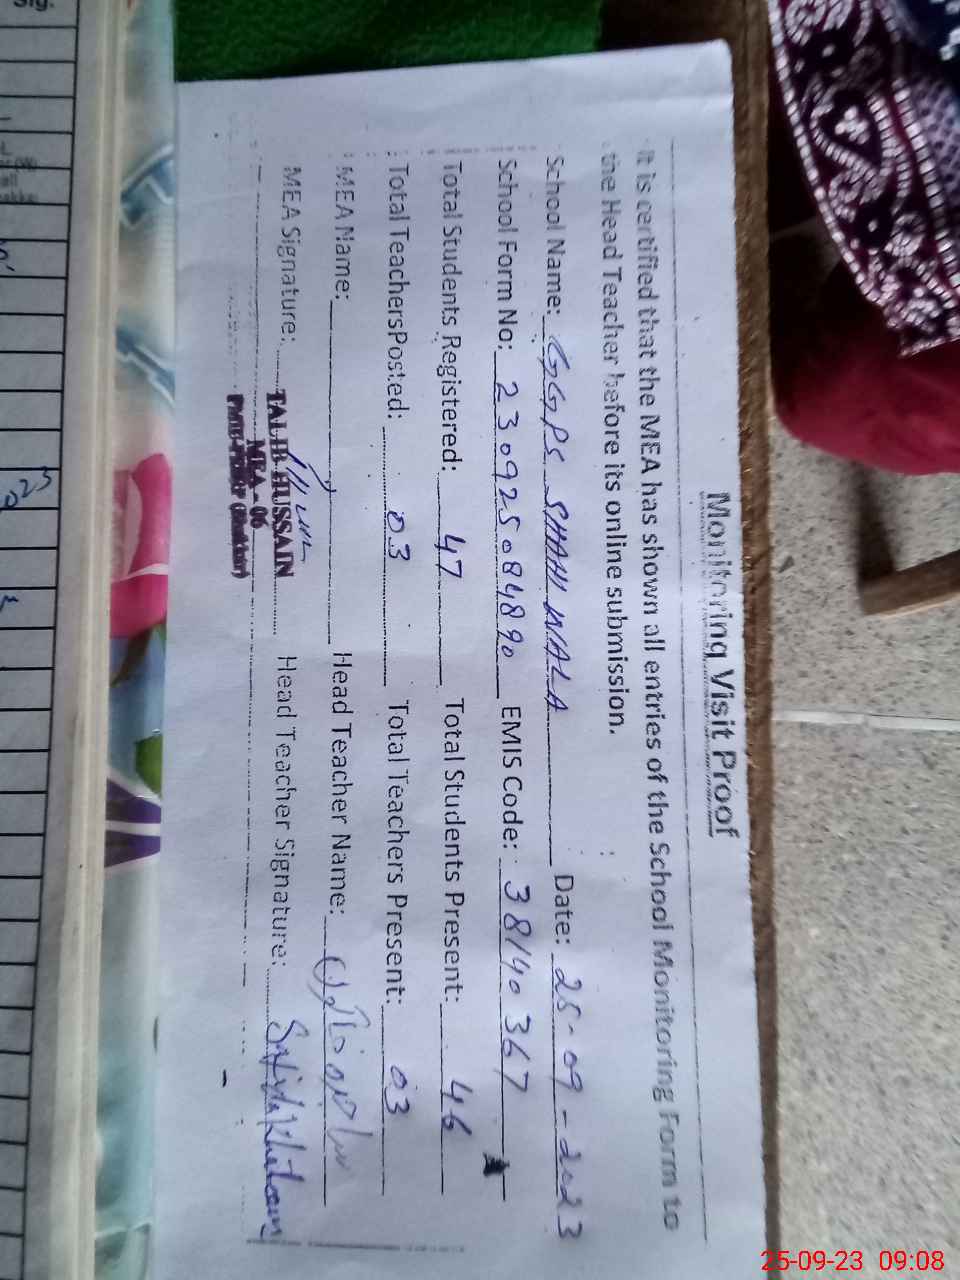 Monitoring Visit Proof
It is certified that the MEA has shown all entries of the School Monitoring Form to
the Head Teacher before its online submission.
School Name: GGPS SHAHWALA Date: 25-09-2023
School Form No: 230925084890 EMIS Code: 38140367
Total Students Registered: 47 Total Students Present: 46
Total TeachersPosted: 03 Total Teachers Present: 03
MEA Name: Head Teacher Name:
MEA Signature: Head Teacher Signature:
TALIB HUSSAIN
MEA - 06
25-09-23 09:08